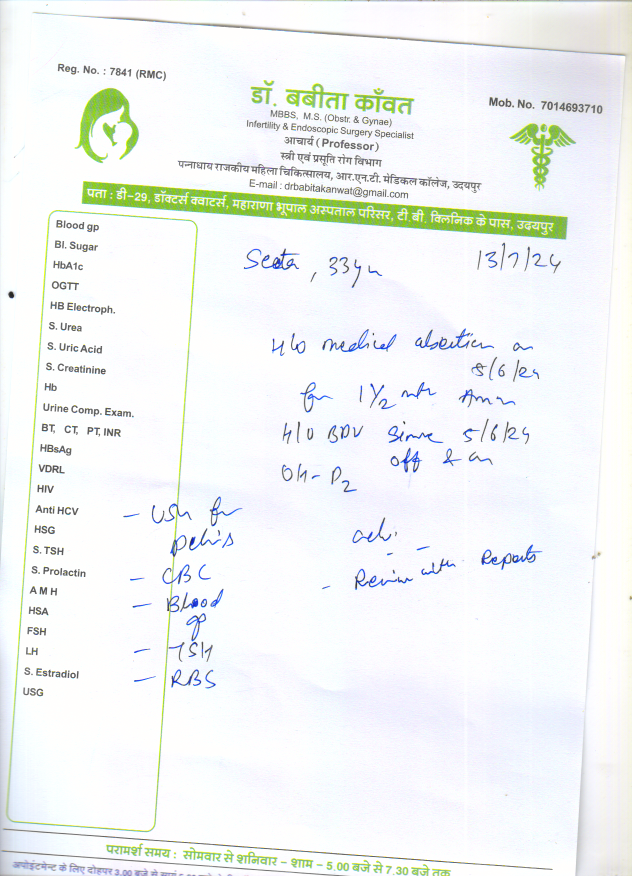 Reg. No. : 7841 (RMC)
डॉ. बबीता काँवत
Mob. No. 7014693710
MBBS, M.S. (Obstr. & Gynae)
Infertility & Endoscopic Surgery Specialist
आचार्य (Professor)
स्त्री एवं प्रसूति रोग विभाग
पन्नाधाय राजकीय महिला चिकित्सालय, आर.एन.टी. मेडिकल कॉलेज, उदयपुर
E-mail : drbabitakanwat@gmail.com
पता : डी-29, डॉक्टर्स क्वाटर्स, महाराणा भूपाल अस्पताल परिसर, टी.बी. क्लिनिक के पास, उदयपुर
Blood gp
Bl. Sugar
HbA1c
OGTT
HB Electroph.
S. Urea
S. Uric Acid
S. Creatinine
Hb
Urine Comp. Exam.
BT, CT, PT, INR
HBsAg
VDRL
HIV
Anti HCV
HSG
S. TSH
S. Prolactin
A M H
HSA
FSH
LH
S. Estradiol
USG
, 33yr
13/7/24
H/o medical abortion on
5/6/24
for 1 1/2 mth
H/O BPV since 5/6/24
off & on
OH - P2
- USG for
pelvis
- CBC
- Blood
gp
- TSH
- RBS
adv.
- Review with Reports
परामर्श समय : सोमवार से शनिवार - शाम - 5.00 बजे से 7.30 बजे तक
अपोइंटमेन्ट के लिए दोहपर 3.00 बजे से